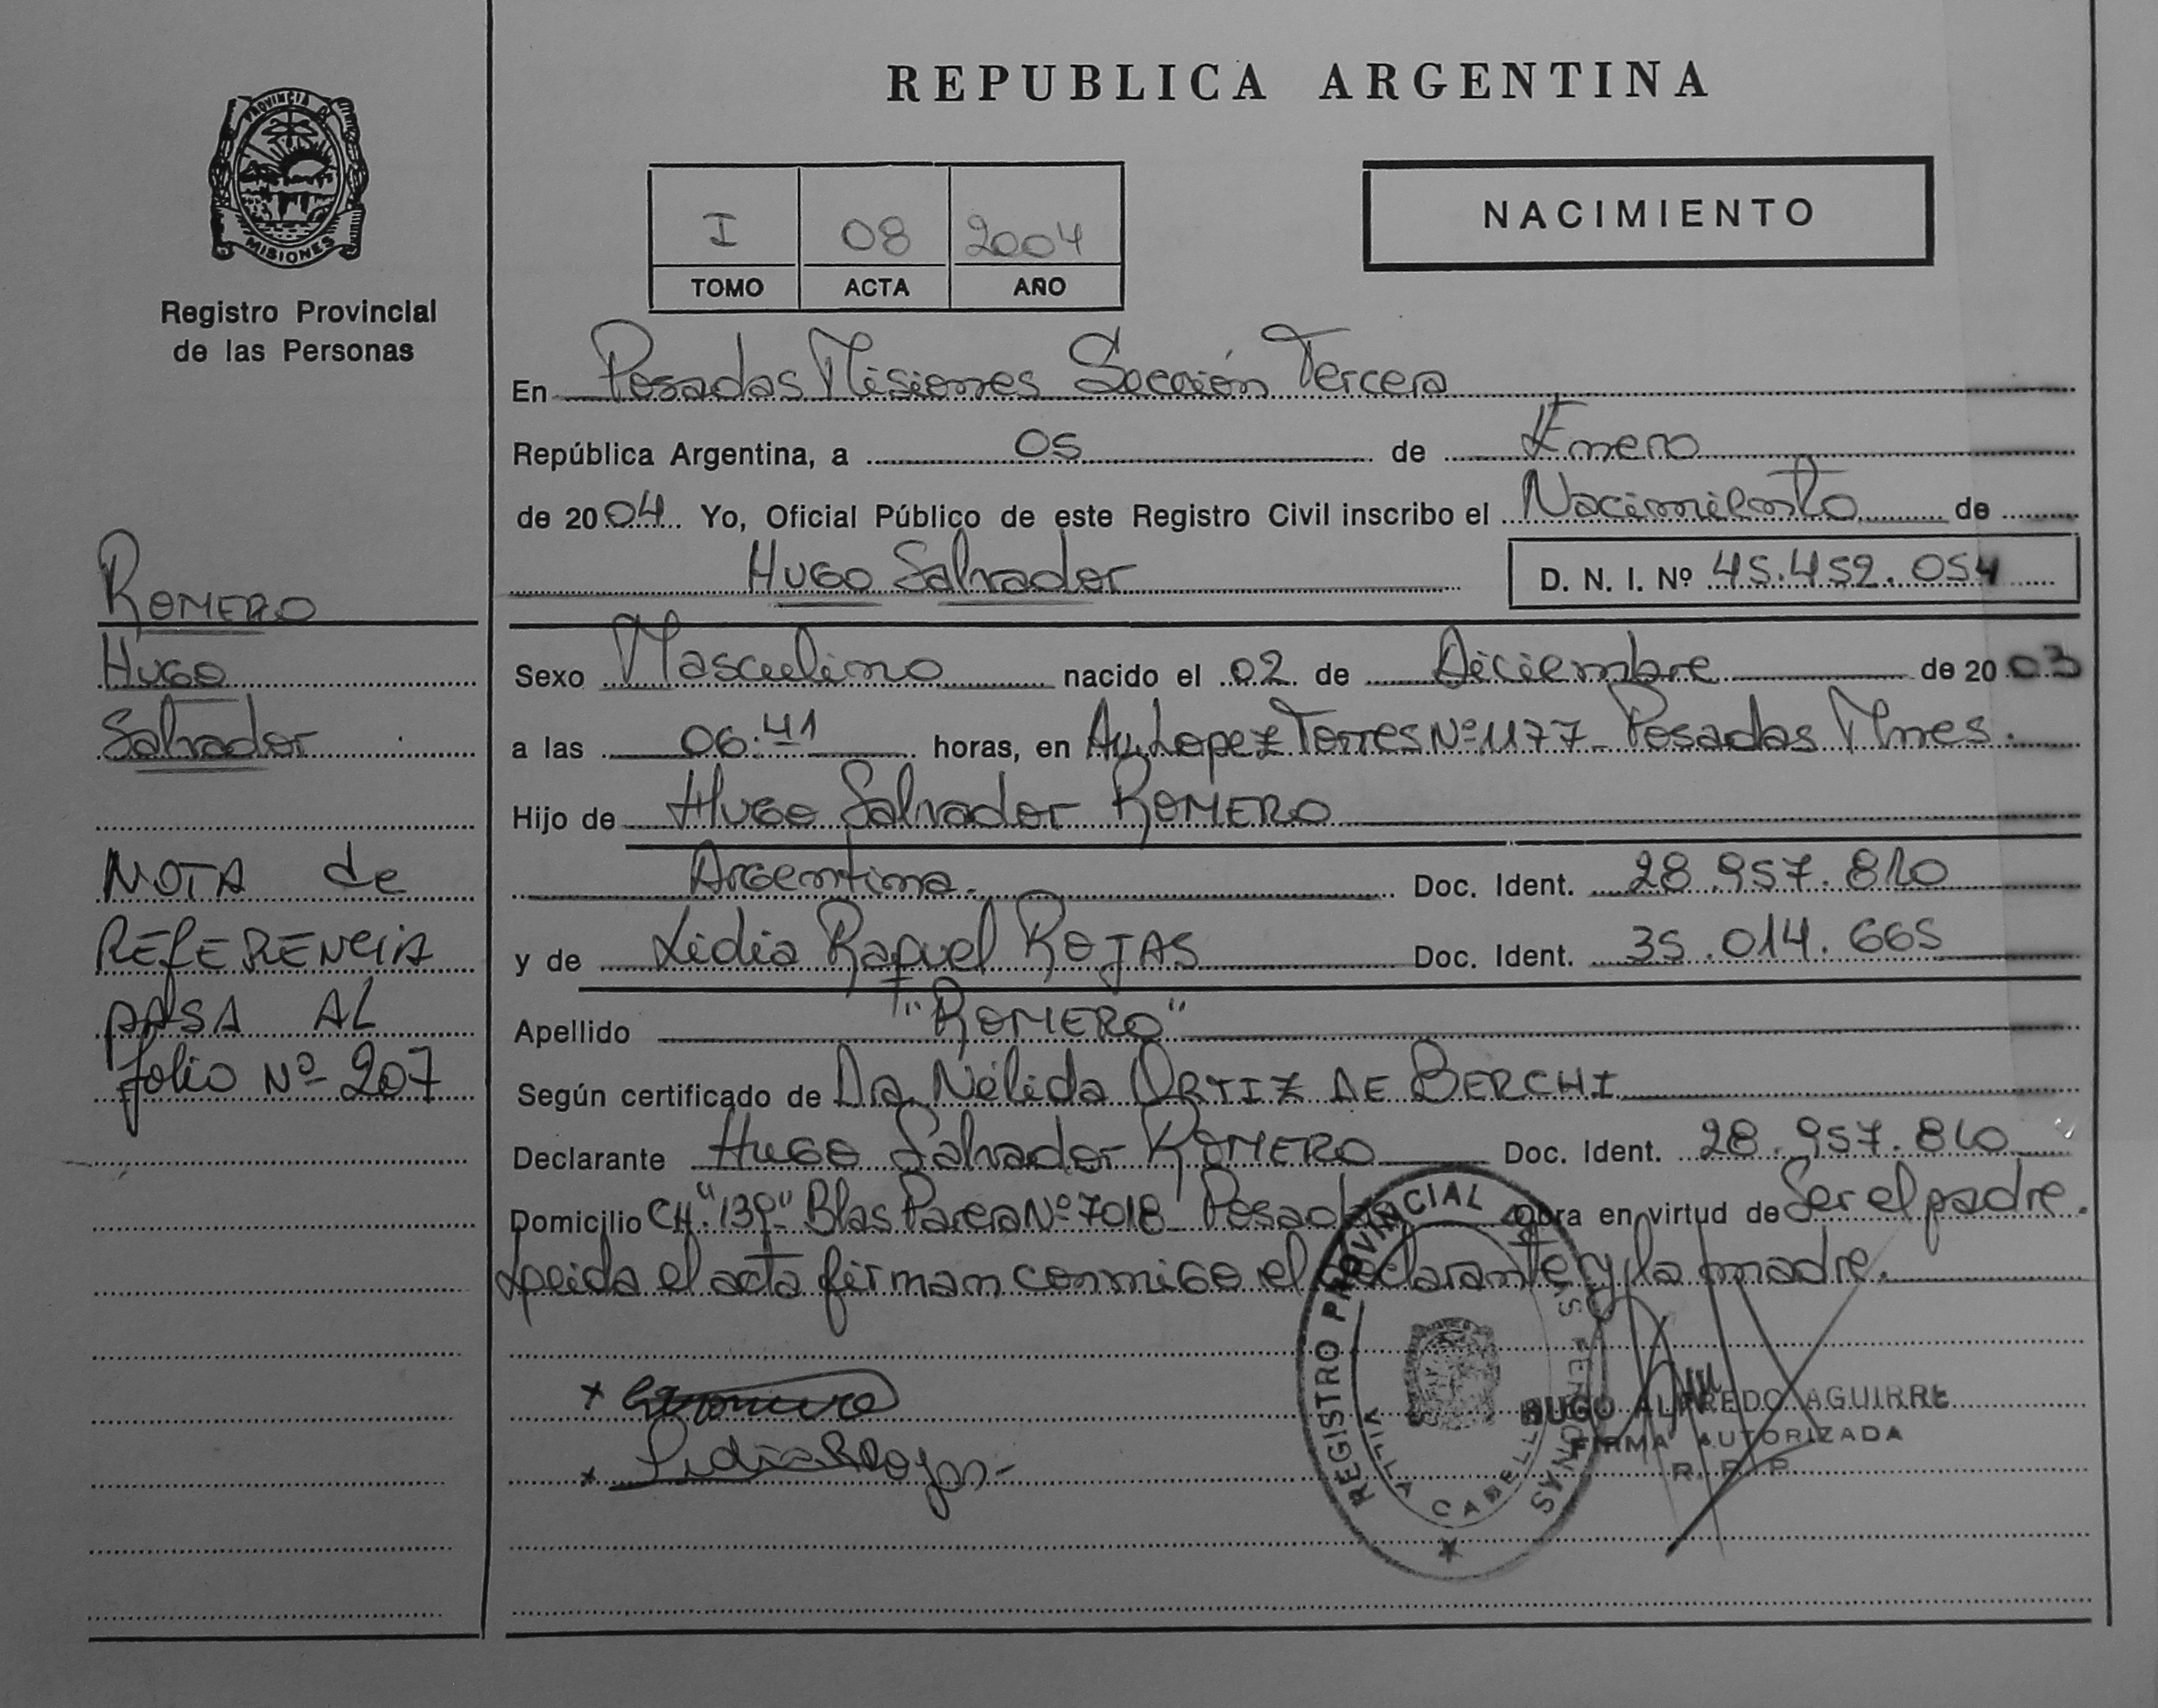 REPUBLICA ARGENTINA
PROVINCIA DE
MISIONES
Registro Provincial
de las Personas
I 08 2004
TOMO ACTA AÑO
NACIMIENTO
En Posadas Misiones Sección Tercera
República Argentina, a 05 de Enero
de 2004 Yo, Oficial Público de este Registro Civil inscribo el Nacimiento de
Hugo Salvador D. N. I. Nº 45.452.054
ROMERO
Hugo
Salvador
Sexo Masculino nacido el 02 de Diciembre de 2003
a las 06:41 horas, en Av. Lopez Torres Nº 1177 Posadas Mnes.
Hijo de Hugo Salvador ROMERO
Argentina. Doc. Ident. 28.957.810
y de Lidia Raquel ROJAS Doc. Ident. 35.014.665
Apellido "ROMERO"
Según certificado de Dra. Nélida ORTIZ DE BERCHI
Declarante Hugo Salvador ROMERO Doc. Ident. 28.957.810
Domicilio CH."139" Blas Parera Nº 7018 Posadas Obra en virtud de Ser el padre.
Leida el acta firman conmigo el declarante y la madre.
NOTA de
REFERENCIA
PASA AL
folio Nº 207
x
x Lidia R Rojas
REGISTRO PROVINCIAL DE LAS PERSONAS
VILLA CABELLO
HUGO ALFREDO AGUIRRE
FIRMA AUTORIZADA
R. P. P.